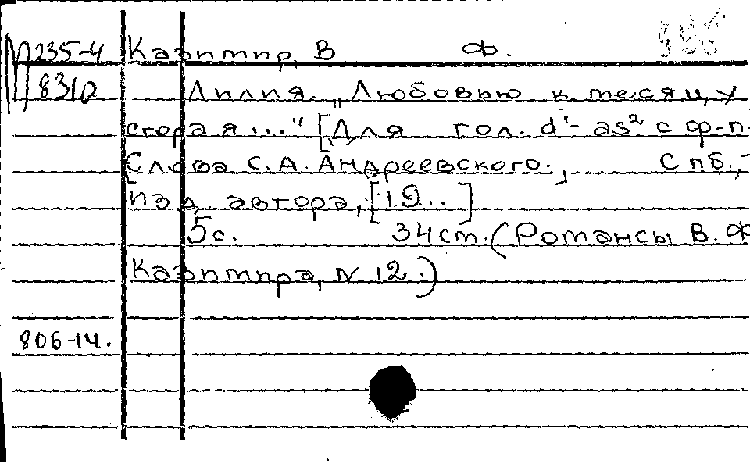 М 235-4 Казимир, В Ф.
8310 Лилия. „Любовью к месяцу
сгорая..." [Для гол. d¹-as² с ф-п.
Слова С.А. Андреевского.] Спб.,
изд. автора, [19..]
5с. 34см. (Романсы В. Ф
Казимира, N 12.)
806-14.